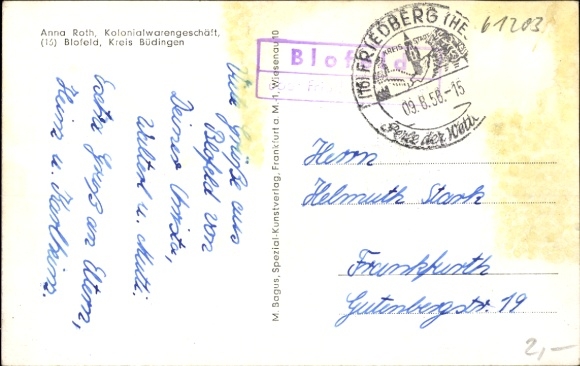 Anna Roth, Kolonialwarengeschäft,
(16) Blofeld, Kreis Büdingen
Viele Grüße aus
Blofeld von
Deiner Christa,
Mutti.
Extra Gruß an Eltern,
Heinz u. Karlheinz.
M. Bagus, Spezial-Kunstverlag, Frankfurt a. M.-1, Wiesenau 10
Blofeld
über Friedberg
(16) FRIEDBERG (HESS)
KREIS
09.8.58.-15
Perle der Wetterau
61203
Herrn
Helmuth Stark
Frankfurth
Gutenbergstr. 19
2,-